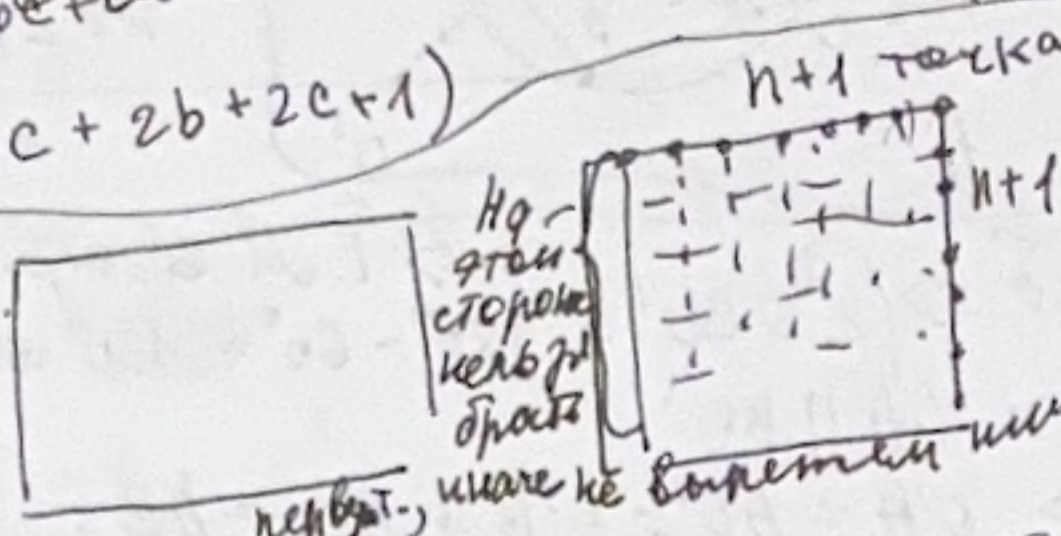 c + 2b + 2c + 1)
n+1 точка
n+1
На
этой
стороне
нельзя
брать
первую т., иначе не вырежем